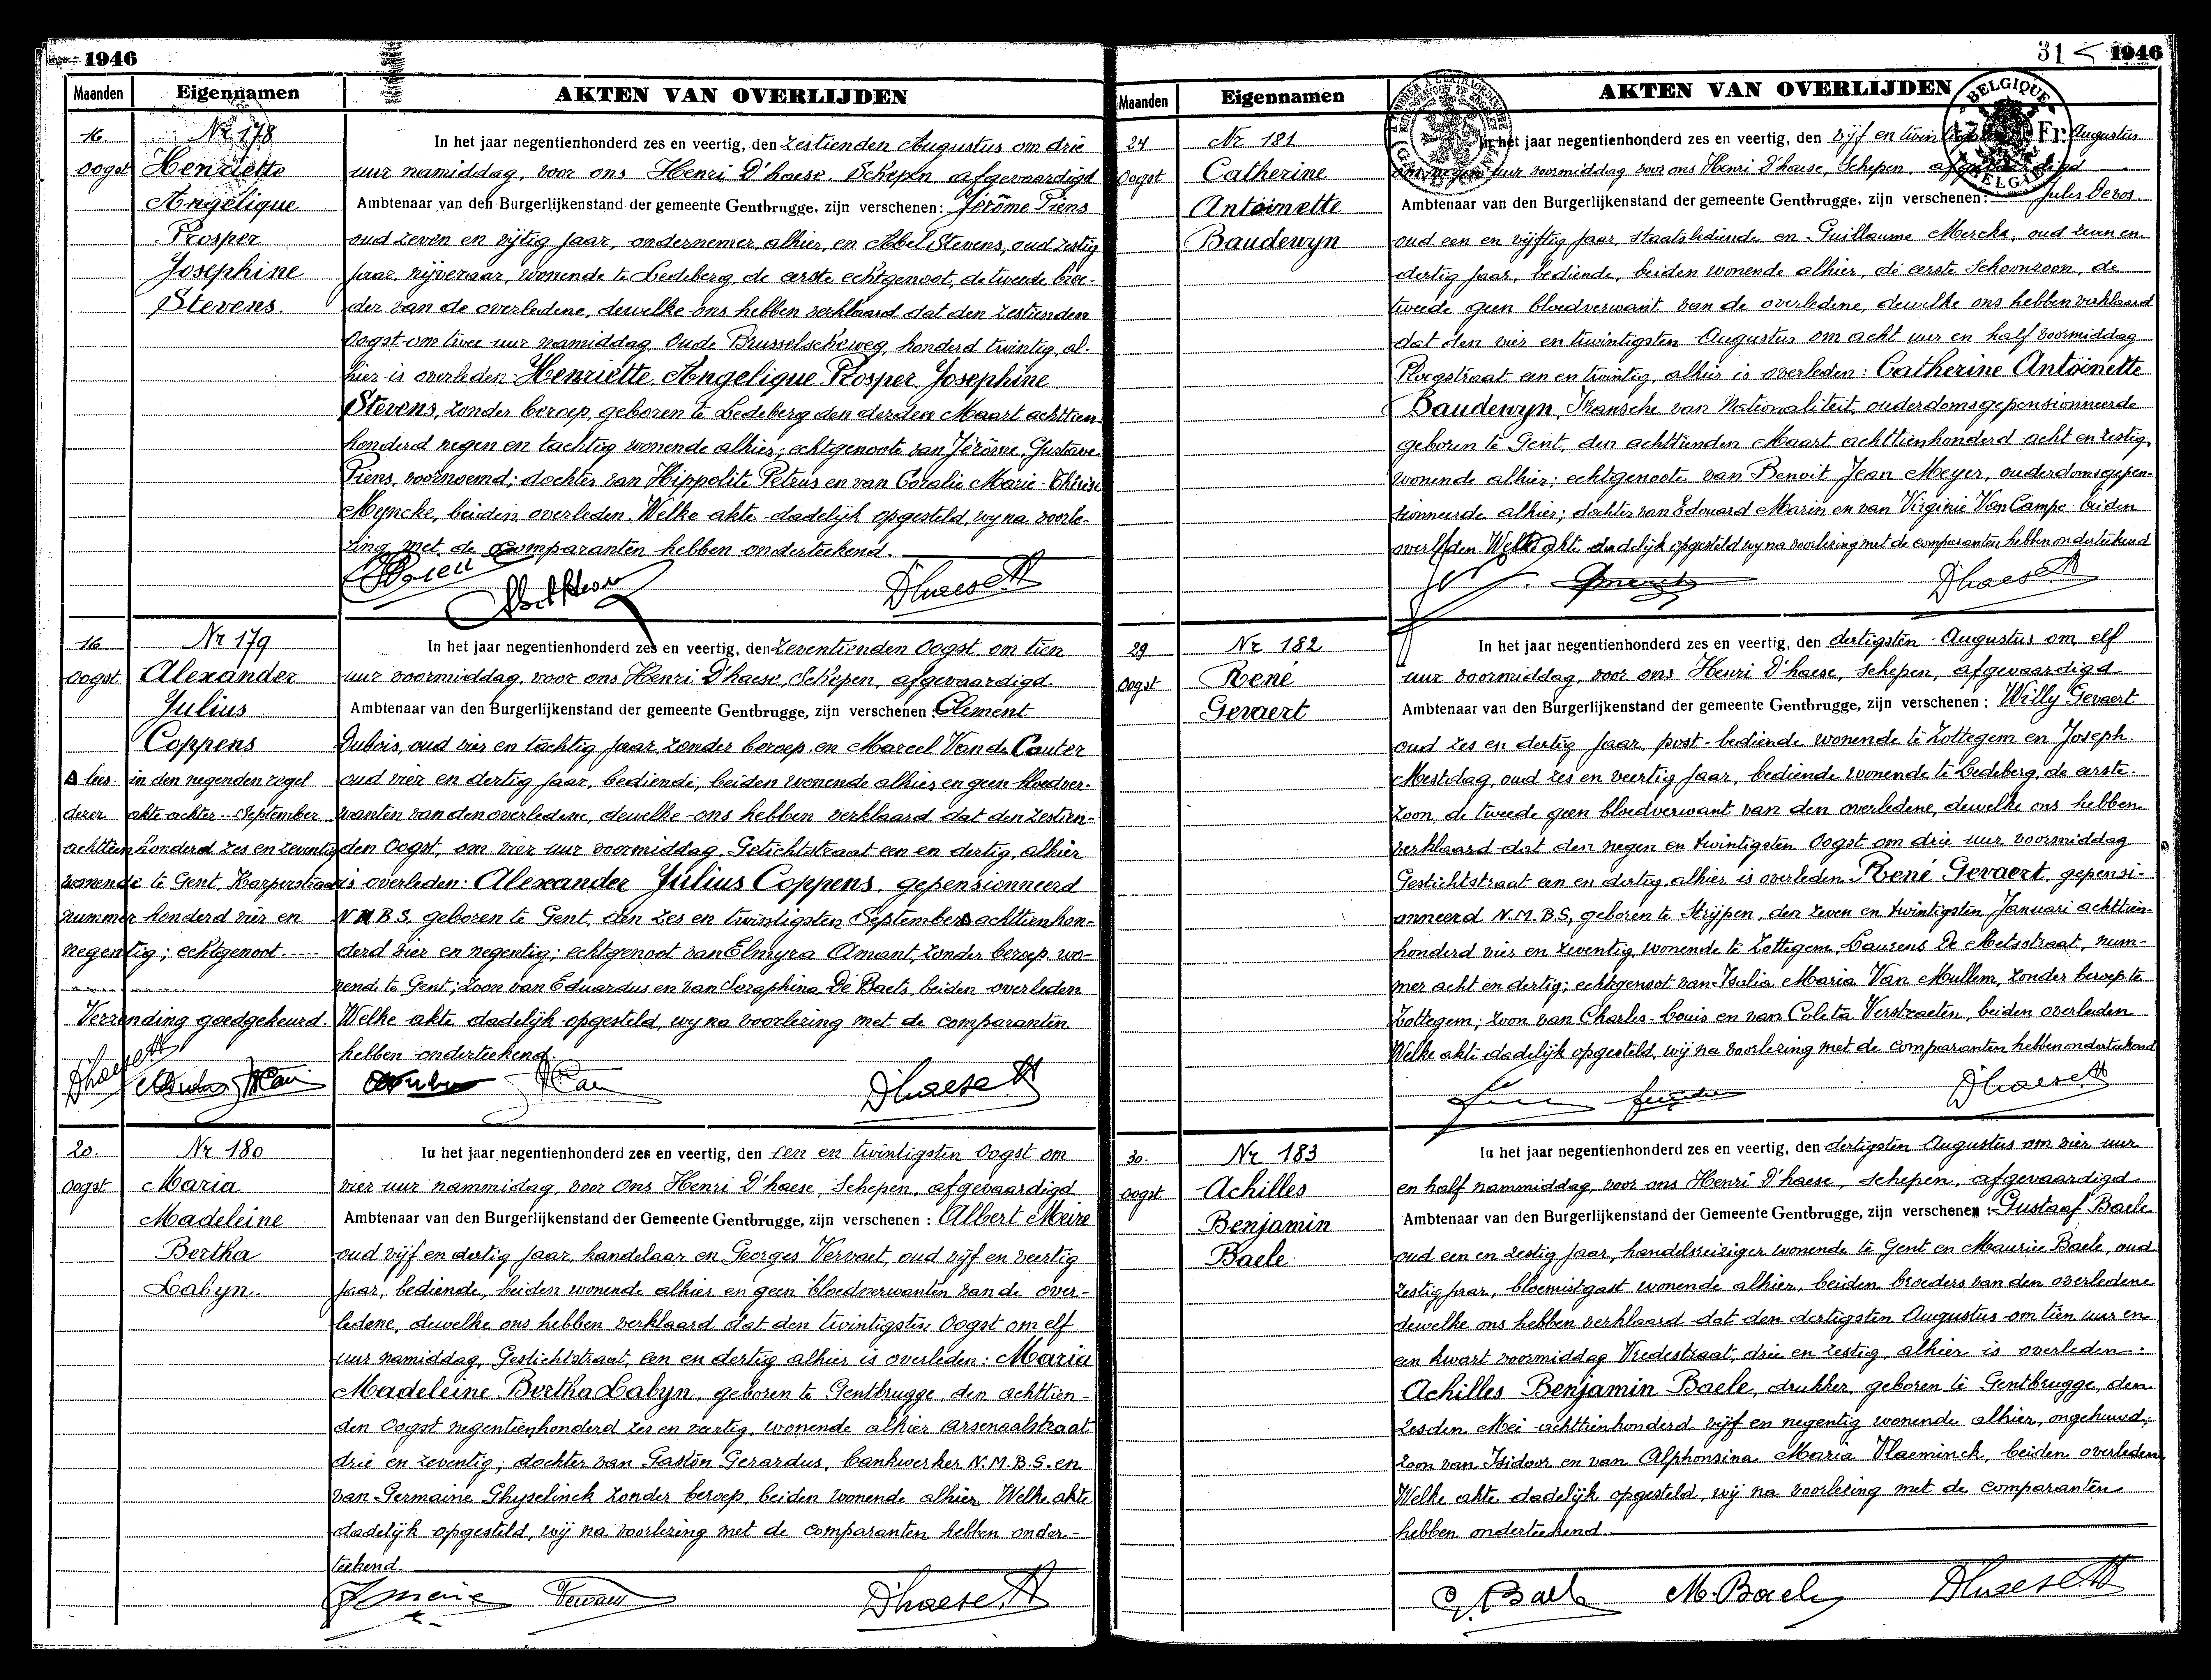 1946
Maanden
Eigennamen
AKTEN VAN OVERLIJDEN
16.
Oogst
Nr 178
Henriette
Angélique
Prosper
Josephine
Stevens.
In het jaar negentienhonderd zes en veertig, den zestienden Augustus om drie
uur namiddag, voor ons Henri D'haese, Schepen, afgevaardigd
Ambtenaar van den Burgerlijkenstand der gemeente Gentbrugge, zijn verschenen: Jérôme Piens
oud zeven en vijtig jaar, ondernemer, alhier, en Abel Stevens, oud zestig
jaar, nijveraar, wonende te Ledeberg, de eerste echtgenoot, de tweede broe-
der van de overledene, dewelke ons hebben verklaard dat den zestienden
Oogst om twee uur namiddag, Oude Brusselscheweg, honderd twintig, al-
hier is overleden Henriette, Angelique Prosper Josephine
Stevens, zonder beroep, geboren te Ledeberg den derden Maart achttien-
honderd negen en tachtig wonende alhier; echtgenoote van Jérôme, Gustave
Piens, voornoemd; dochter van Hippolite Petrus en van Coralie Marie-Thérèse
Myncke, beiden overleden. Welke akte dadelijk opgesteld, wy na voorle-
zing met de comparanten hebben onderteekend.
D'haese H
16
Oogst
Nr 179
Alexander
Julius
Coppens
lees in den negenden regel
dezer akte achter September
achttienhonderd zes en zeventig
wonende te Gent, Karperstraat
nummer honderd vier en
negentig; echtgenoot
Verzending goedgekeurd
D'haese H
In het jaar negentienhonderd zes en veertig, den zeventienden Oogst om tien
uur voormiddag, voor ons Henri D'haese, Schepen, afgevaardigd.
Ambtenaar van den Burgerlijkenstand der gemeente Gentbrugge, zijn verschenen: Clement
Dubois, oud vier en tachtig jaar, zonder beroep en Marcel Van de Cauter
oud vier en dertig jaar, bediende, beiden wonende alhier en geen bloedver-
wanten van den overledene, dewelke ons hebben verklaard dat den zestien-
den Oogst, om vier uur voormiddag, Gestichtstraat een en dertig, alhier
is overleden: Alexander Julius Coppens, gepensionneerd
N.M.B.S. geboren te Gent, den zes en twintigsten September achttienhon-
derd vier en negentig; echtgenoot van Elmyra Amant, zonder beroep, wo-
nende te Gent; zoon van Eduardus en van Seraphina De Baets, beiden overleden
Welke akte dadelijk opgesteld, wy na voorlezing met de comparanten
hebben onderteekend.
D'haese H
20.
Oogst
Nr 180
Maria
Madeleine
Bertha
Labyn.
In het jaar negentienhonderd zes en veertig, den een en twintigsten Oogst om
vier uur nammidag, voor ons Henri D'haese, Schepen, afgevaardigd
Ambtenaar van den Burgerlijkenstand der Gemeente Gentbrugge, zijn verschenen: Albert Meire
oud vijf en dertig jaar, handelaar en Georges Vervaet, oud vijf en veertig
jaar, bediende, beiden wonende alhier en geen bloedverwanten van de over-
ledene, dewelke ons hebben verklaard dat den twintigsten Oogst om elf
uur namiddag, Gestichtstraat, een en dertig alhier is overleden: Maria
Madeleine Bertha Labyn, geboren te Gentbrugge, den achttien-
den Oogst negentienhonderd zes en veertig, wonende alhier Arsenaalstraat
drie en zeventig; dochter van Gaston Gerardus, bankwerker N.M.B.S. en
van Germaine Ghyselinck zonder beroep, beiden wonende alhier. Welke akte
dadelijk opgesteld, wij na voorlezing met de comparanten hebben onder-
teekend.
Meire Vervaet D'haese H
31 1946
Maanden
Eigennamen
AKTEN VAN OVERLIJDEN
BELGIQUE
Fr.
BELGIE
24
Oogst
Nr 181
Catherine
Antoinette
Baudewyn
In het jaar negentienhonderd zes en veertig, den vijf en twintigsten Augustus
om negen uur voormiddag voor ons Henri D'haese, Schepen, afgevaardigd
Ambtenaar van den Burgerlijkenstand der gemeente Gentbrugge, zijn verschenen: Jules Devos
oud een en vijftig jaar, staatsbediende en Guillaume Merckx, oud zeven en
dertig jaar, bediende, beiden wonende alhier, de eerste schoonzoon, de
tweede geen bloedverwant van de overledene, dewelke ons hebben verklaard
dat den vier en twintigsten Augustus om acht uur en half voormiddag
Ploegstraat een en twintig, alhier is overleden: Catherine Antoinette
Baudewyn, Fransche van Nationaliteit, ouderdomsgepensionneerde
geboren te Gent, den achttienden Maart achttienhonderd acht en zestig,
wonende alhier; echtgenoote van Benoit Jean Meyer, ouderdomsgepen-
sionneerde alhier; dochter van Edouard Marin en van Virginie Van Campe beiden
overleden. Welke akte dadelijk opgesteld wij na voorlezing met de comparanten hebben onderteekend
D'haese H
29
Oogst
Nr 182
René
Gevaert
In het jaar negentienhonderd zes en veertig, den dertigsten Augustus om elf
uur voormiddag, voor ons Henri D'haese, Schepen, afgevaardigd
Ambtenaar van den Burgerlijkenstand der gemeente Gentbrugge, zijn verschenen: Willy Gevaert
oud zes en dertig jaar post-bediende wonende te Zottegem en Joseph
Mestdag, oud zes en veertig jaar, bediende wonende te Ledeberg, de eerste
zoon, de tweede geen bloedverwant van den overledene, dewelke ons hebben
verklaard dat den negen en twintigsten Oogst om drie uur voormiddag
Gestichtstraat een en dertig, alhier is overleden René Gevaert, gepensi-
onneerd N.M.B.S, geboren te Strijpen, den zeven en twintigsten Januari achttien-
honderd vier en zeventig, wonende te Zottegem, Laurens De Metsstraat, num-
mer acht en dertig; echtgenoot van Julia Maria Van Mullem, zonder beroep te
Zottegem; zoon van Charles-Louis en van Coleta Verstraeten, beiden overleden
Welke akte dadelijk opgesteld, wij na voorlezing met de comparanten hebben onderteekend
D'haese H
30.
Oogst
Nr 183
Achilles
Benjamin
Baele.
In het jaar negentienhonderd zes en veertig, den dertigsten Augustus om vier uur
en half nammiddag, voor ons Henri D'haese, schepen, afgevaardigd
Ambtenaar van den Burgerlijkenstand der Gemeente Gentbrugge, zijn verschenen: Gustaaf Baele
oud een en zestig jaar, handelsreiziger wonende te Gent en Maurice Baele, oud
zestig jaar, bloemistgast wonende alhier, beiden broeders van den overledene
dewelke ons hebben verklaard dat den dertigsten Augustus om tien uur en
een kwart voormiddag Vredestraat, drie en zestig, alhier is overleden:
Achilles Benjamin Baele, drukker, geboren te Gentbrugge, den
zesden Mei achttienhonderd vijf en negentig wonende alhier, ongehuwd;
zoon van Isidoor en van Alphonsina Maria Vlaeminck, beiden overleden,
Welke akte dadelijk opgesteld, wij na voorlezing met de comparanten
hebben onderteekend.
G. Baele M. Baele D'haese H